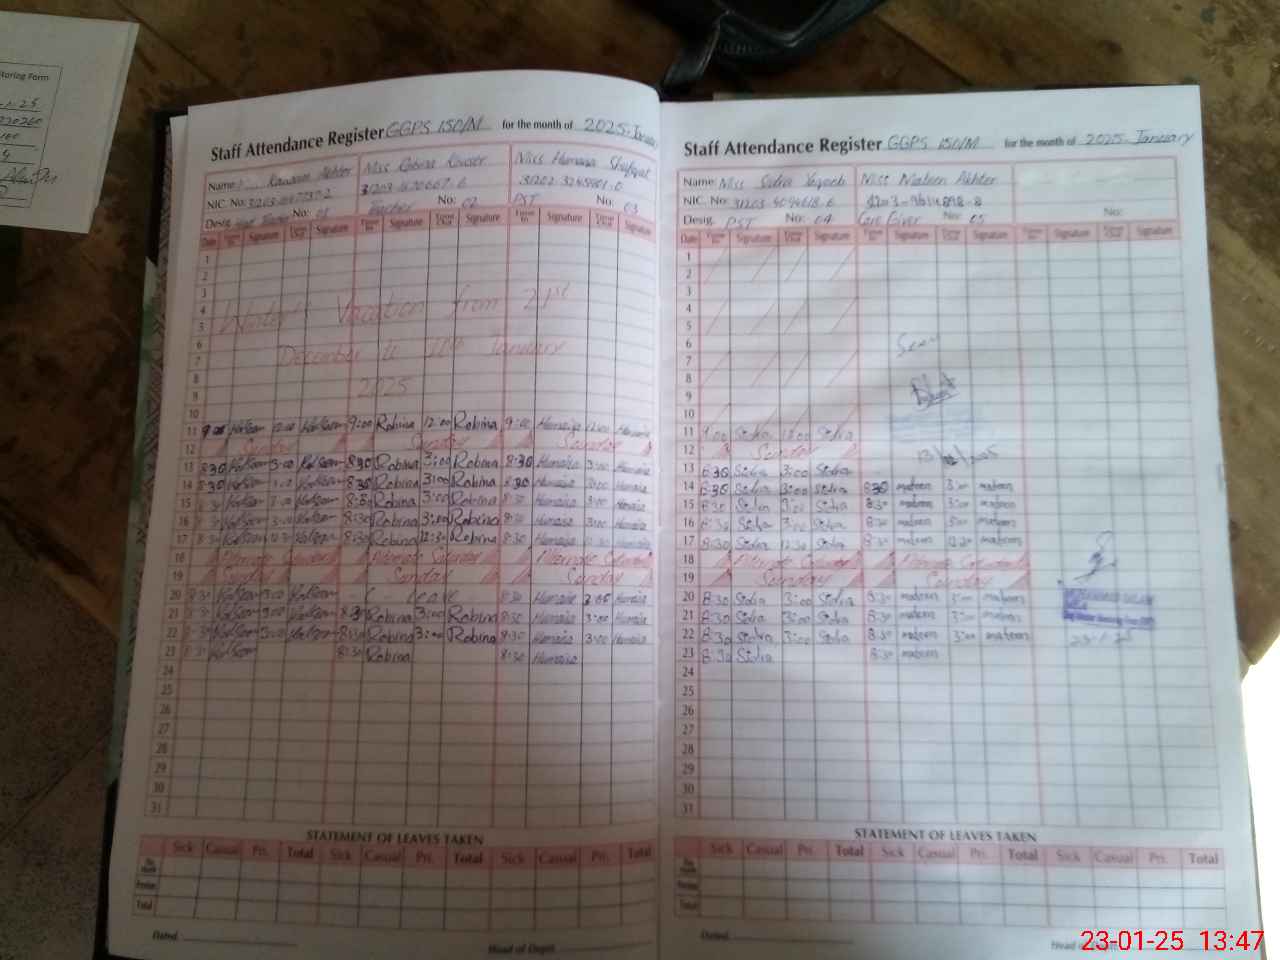 toring Form
Staff Attendance Register GGPS 150/M for the month of 2025-January
Name: Akhter Miss Robina Kouser Miss Humaira Shafqat
NIC. No:
Desig. No: 01 Teacher No: 02 PST No: 03
Date Time In Signature Time Out Signature Time In Signature Time Out Signature Time In Signature Time Out Signature
1
2
3
4
5
Winter Vacation from 21st
6
7
December to January
8
9
2025
10
11 9:00 Kalsoom 12:00 Kalsoom 9:00 Robina 12:00 Robina 9:00 Humaira 12:00 Humaira
Sunday Sunday Sunday
13 8:30 Kalsoom 3:00 Kalsoom 8:30 Robina 3:00 Robina 8:30 Humaira 3:00 Humaira
14 8:30 Kalsoom 3:00 Kalsoom 8:30 Robina 3:00 Robina 8:30 Humaira 3:00 Humaira
15 8:30 Kalsoom 3:00 Kalsoom 8:30 Robina 3:00 Robina 8:30 Humaira 3:00 Humaira
16 8:30 Kalsoom 3:00 Kalsoom 8:30 Robina 3:00 Robina 8:30 Humaira 3:00 Humaira
17 8:30 Kalsoom 12:30 Kalsoom 8:30 Robina 12:30 Robina 8:30 Humaira 12:30 Humaira
18 Alternate Saturday Alternate Saturday Alternate Saturday
19 Sunday Sunday Sunday
20 8:30 Kalsoom 3:00 Kalsoom Leave 8:30 Humaira 3:00 Humaira
21 8:30 Kalsoom 3:00 Kalsoom 8:30 Robina 3:00 Robina 8:30 Humaira 3:00 Humaira
22 8:30 Kalsoom 3:00 Kalsoom 8:30 Robina 3:00 Robina 8:30 Humaira 3:00 Humaira
23 8:30 Kalsoom 8:30 Robina 8:30 Humaira
24
25
26
27
28
29
30
31
STATEMENT OF LEAVES TAKEN
Sick Casual Pri. Total Sick Casual Pri. Total Sick Casual Pri. Total
This Month
Previous
Total
Dated. Head of Deptt.
Staff Attendance Register GGPS 150/M for the month of 2025-January
Name: Miss Sidra Yaqoob Miss Mateen Akhter
NIC. No:
Desig. PST No: 04 Care Giver No: 05 No:
Date Time In Signature Time Out Signature Time In Signature Time Out Signature Time In Signature Time Out Signature
1
2
3
4
5
6
Seen
7
8
9
10
11 9:00 Sidra 12:00 Sidra
12 Sunday
13 8:30 Sidra 3:00 Sidra
14 8:30 Sidra 3:00 Sidra 8:30 mateen 3:00 mateen
15 8:30 Sidra 3:00 Sidra 8:30 mateen 3:00 mateen
16 8:30 Sidra 3:00 Sidra 8:30 mateen 3:00 mateen
17 8:30 Sidra 12:30 Sidra 8:30 mateen 12:30 mateen
18 Alternate Saturday Alternate Saturday
19 Sunday Sunday
20 8:30 Sidra 3:00 Sidra 8:30 mateen 3:00 mateen
21 8:30 Sidra 3:00 Sidra 8:30 mateen 3:00 mateen
22 8:30 Sidra 3:00 Sidra 8:30 mateen 3:00 mateen
23 8:30 Sidra 8:30 mateen
24
25
26
27
28
29
30
31
STATEMENT OF LEAVES TAKEN
Sick Casual Pri. Total Sick Casual Pri. Total Sick Casual Pri. Total
This Month
Previous
Total
Dated. Head of Deptt.
23-01-25 13:47